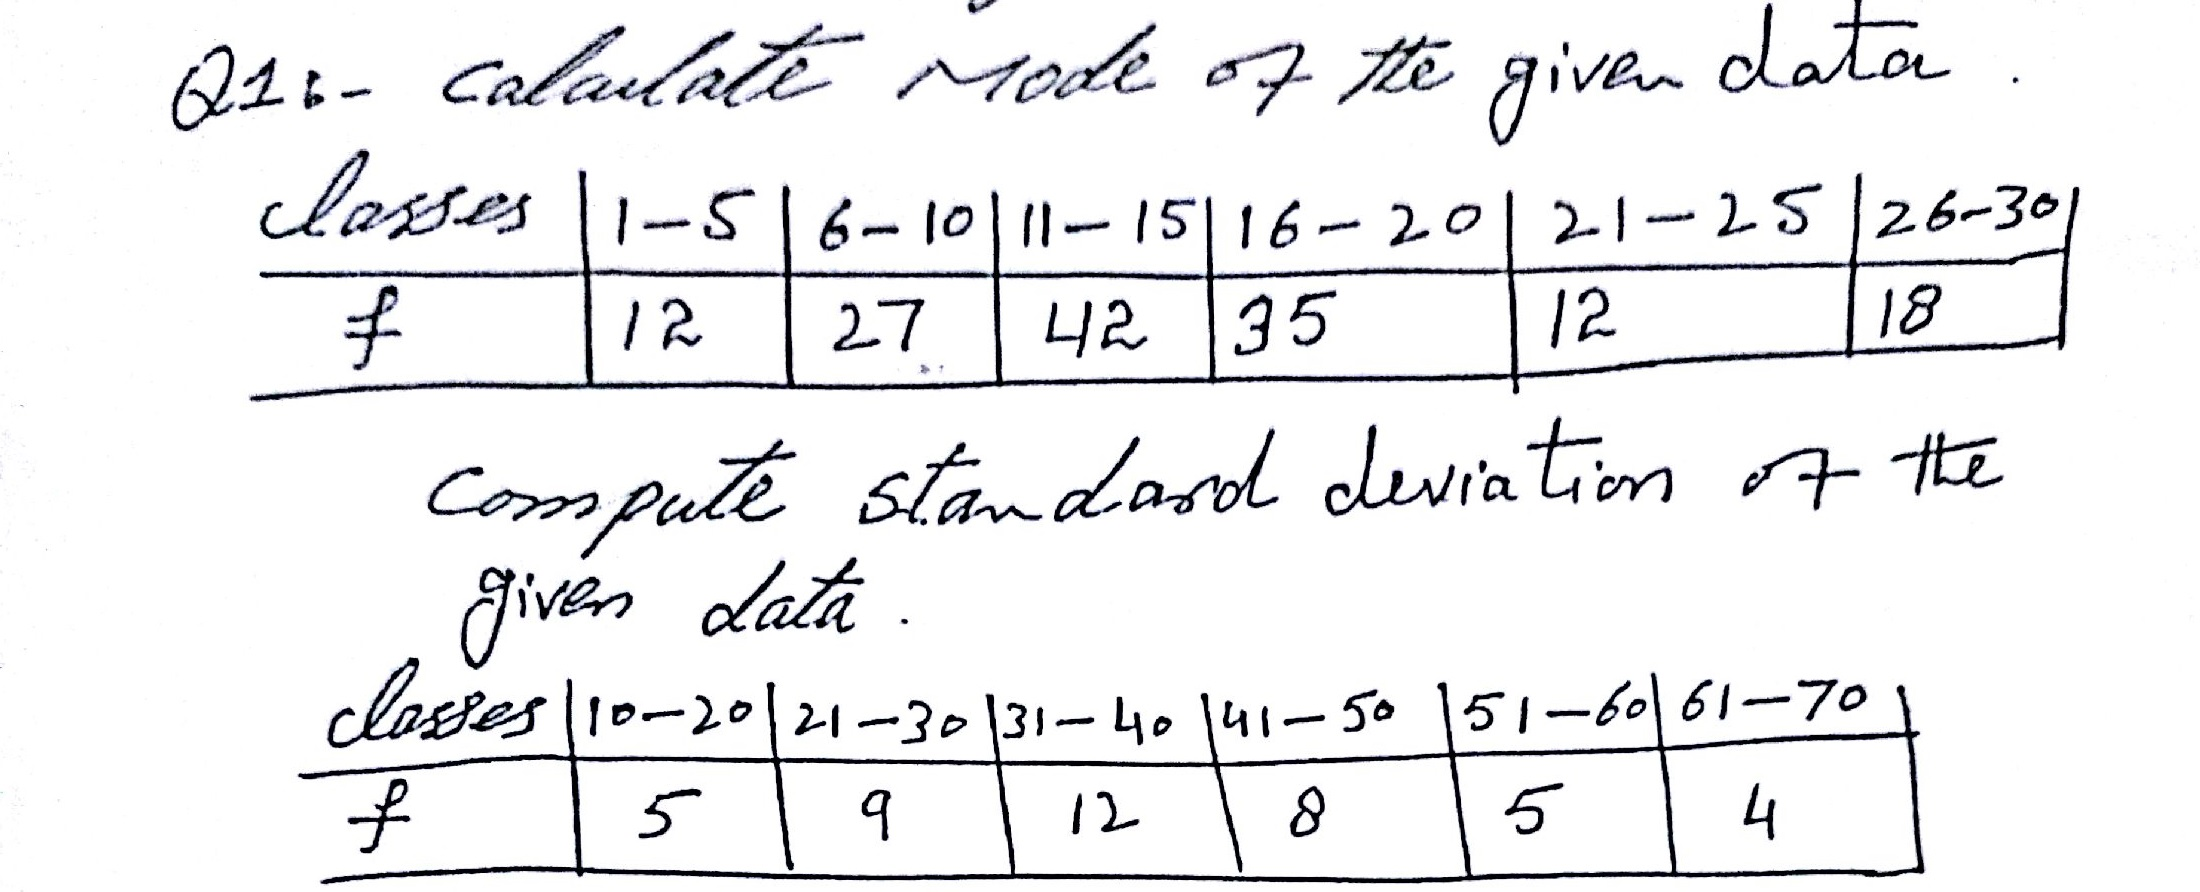 Q1:- Calculate Mode of the given data.
classes | 1-5 | 6-10 | 11-15 | 16-20 | 21-25 | 26-30
f | 12 | 27 | 42 | 35 | 12 | 18
Compute standard deviation of the
given data.
classes | 10-20 | 21-30 | 31-40 | 41-50 | 51-60 | 61-70
f | 5 | 9 | 12 | 8 | 5 | 4